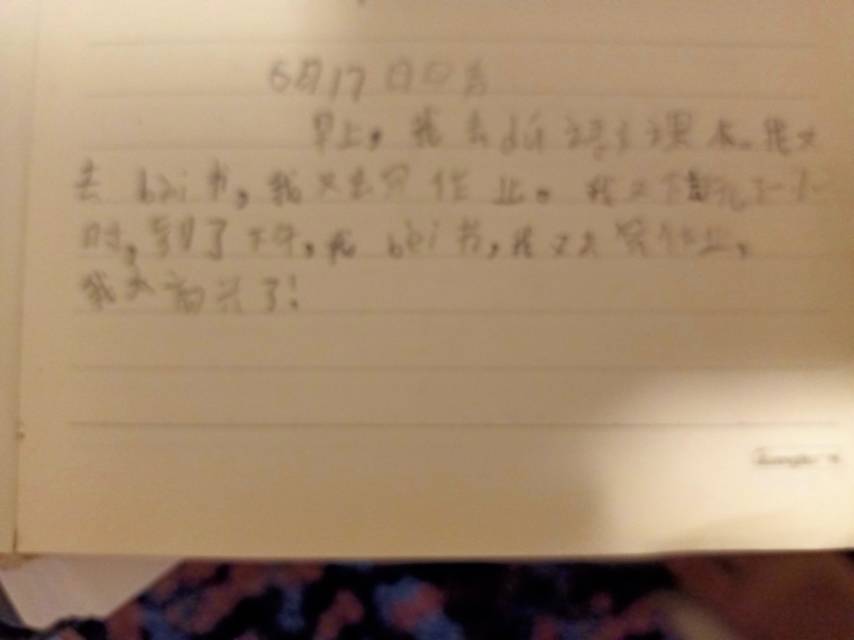 6月17日日记
早上,我去dú语文课本。我又
去bèi书,我又去写作业。我又
时,到了下午,我bèi书,我又去写作业,
我太高兴了!